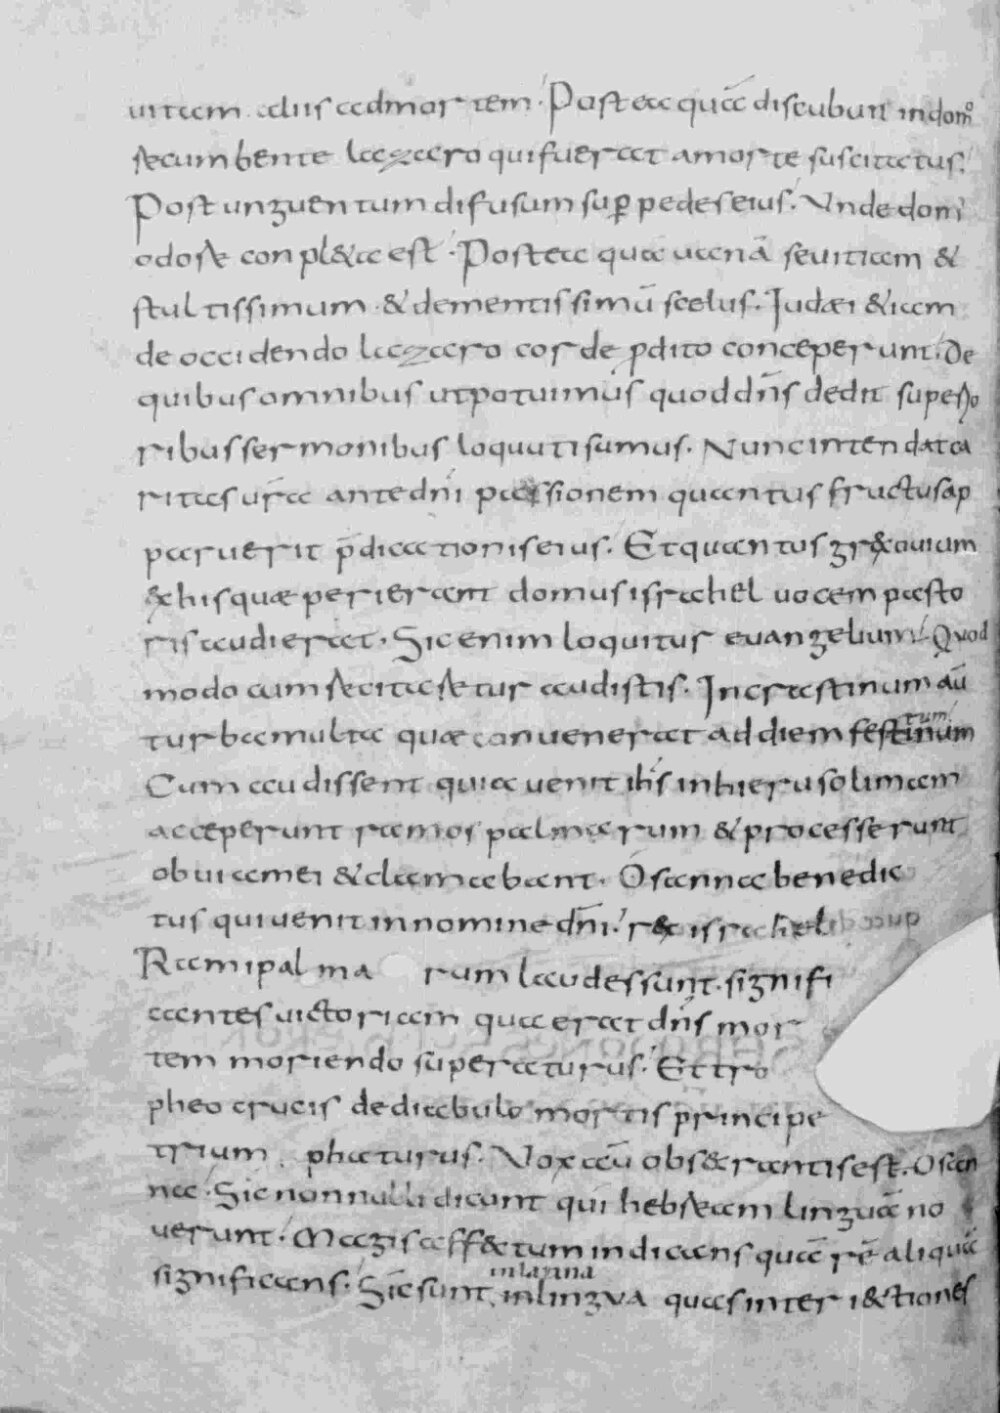 uitam alus admortem. Postea quā discubun indom̊
recumbente lazaro quifuerat amorte suscitatus.
Post unguentum difusum sup̱ pedeseius. Vnde domꝰ
odore conpl&a est. Postea qua uaenā seuitiam &
stultissimum & dementissimū scelus. Judæi &iam
de occidendo lazaro corde p̱dito conceperunt. De
quibus omnibus utpotuimus quod dn̄s dedit superio
ribus sermonibus loquuti sumus. Nunc intendat ca
ritas ur̄a ante dn̄i passionem quantus fructus ap
paruerit p̄dicationis eius. Et quantus gr&ouium
&hisquæ perierant domus israhel uocem pasto
ris audierat. Sic enim loquitur euangelium. Quod
modo cum recitaretur audistis. Incrastinum aū
turba multa quæ conuenerat ad diem festinum
tum
Cum audissent quia uenit ih̄s inhierusolimam
acceperunt ramos palmarum & processerunt
obuiamei & clamabant. Osanna benedic
tus qui uenit innomine dn̄i. r& israhel
Rami palma rum laudessunt. signifi
cantes uictoriam qua erat dn̄s mor
tem moriendo superaturus. Et tro
pheo crucis dediabulo mortis principe
trium phaturus. Vox aū obs&rantis est. Osan
na. Sic nonnulli dicunt qui hebream linguā no
uerunt. Magis aff&tum indicans quā rē aliquā
inlatina
significans. Sic sunt inlingua quasinteri&tiones